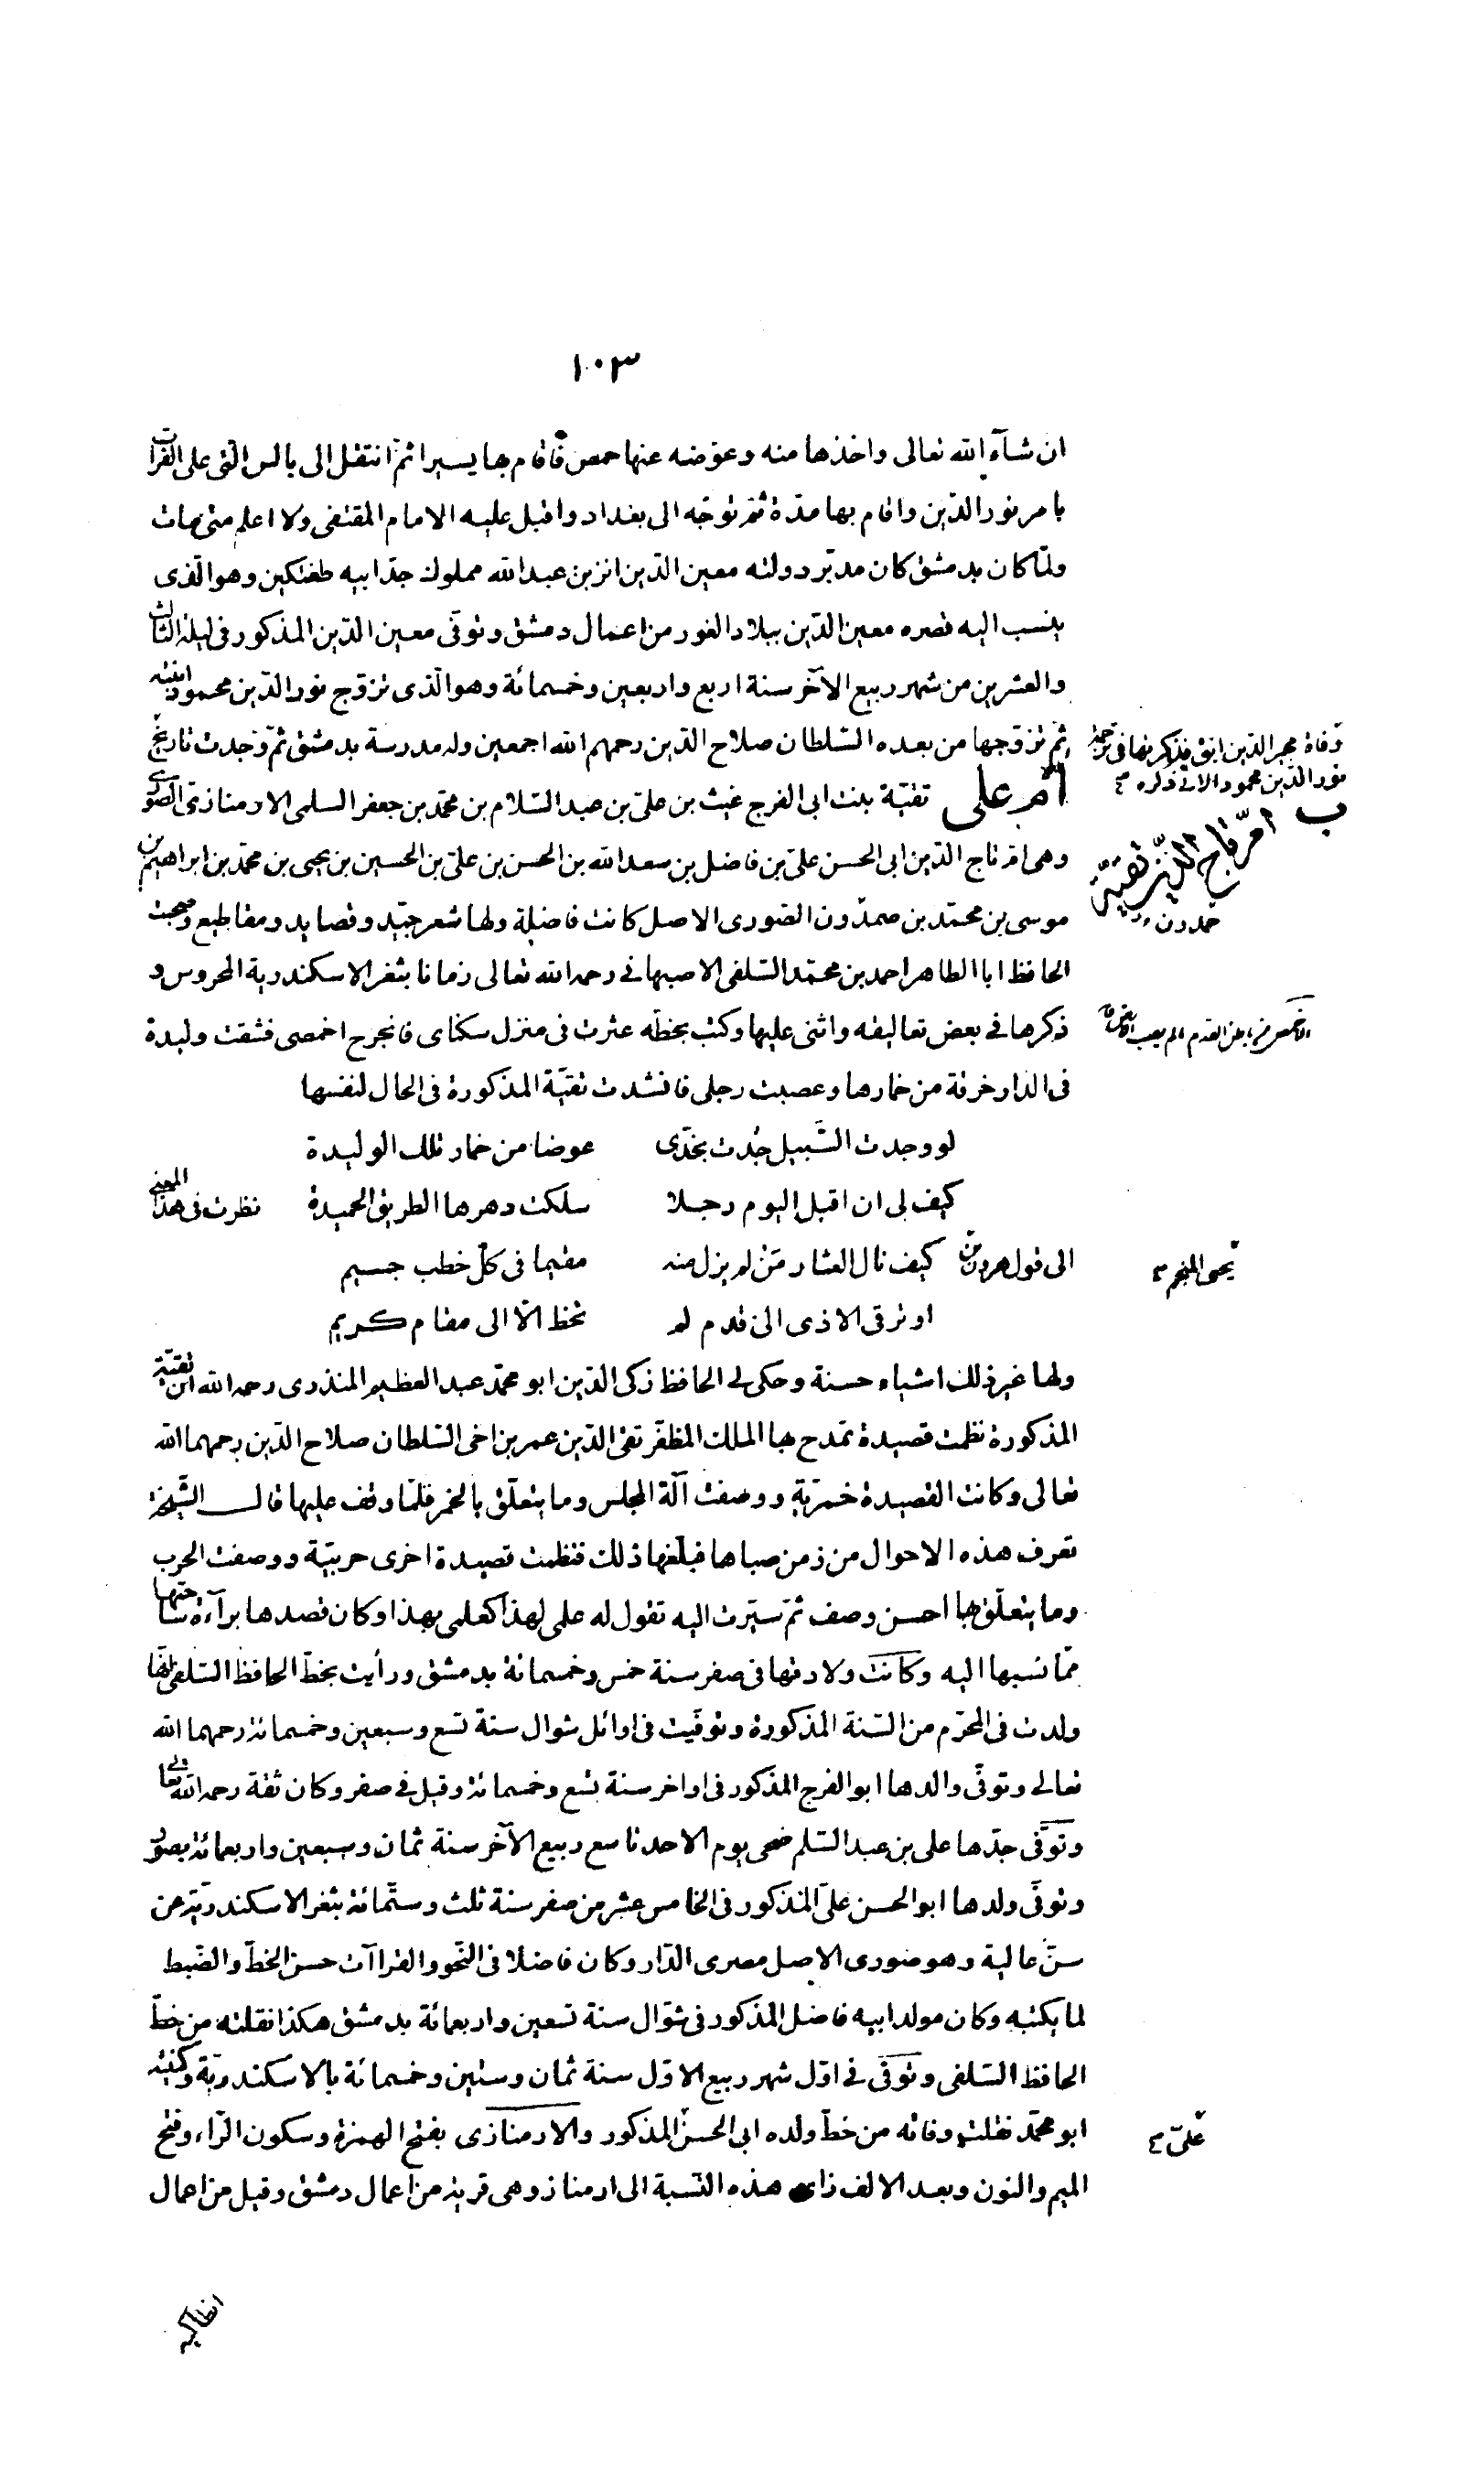 ١٠٣
ان شآء الله تعالى واخذها منه وعوّضه عنها حمص فاقام بها يسيرا ثمّ انتقل الى بالس الّتى على الفرات
بامر نور الدّين واقام بها مدّة ثمّ توجّه الى بغداد واقبل عليه الامام المقتفى ولا اعلم متى مات
ولمّا كان بدمشق كان مدبّر دولته معين الدّين انز بن عبد الله مملوك جدّ ابيه طغتكين وهو الّذى
ينسب اليه قصره معين الدّين ببلاد الغور من اعمال دمشق وتوفّى معين الدّين المذكور فى ليلة الثالث
والعشرين من شهر ربيع الآخر سنة اربع واربعين وخمسمائة وهو الّذى تزوّج نور الدّين محمود ابنته
ثمّ تزوّجها من بعده السّلطان صلاح الدّين رحمهم الله اجمعين وله مدرسة بدمشق ثمّ وجدت تاريخ
وفاة مجير الدّين ابق فذكرتها فى ترجمة
نور الدّين محمود الاتى ذكره
امّ على تقيّة بنت ابى الفرج غيث بن علىّ بن عبد السّلام بن محمّد بن جعفر السلمى الارمنازىّ الصورى
ب امّ تاج الدّين تقيّة
وهى امّ تاج الدّين ابى الحسن علىّ بن فاضل بن سعد الله بن الحسن بن علىّ بن الحسين بن يحيى بن محمّد بن ابراهيم بن
موسى بن محمّد بن صمدون الصّورى الاصل كانت فاضلة ولها شعر جيّد وقصايد ومقاطيع وصحبت
حمدون
الحافظ ابا الطاهر احمد بن محمّد السّلفى الاصبهانى رحمه الله تعالى زمانا بثغر الاسكندرية المحروس و
ذكرها فى بعض تعاليقه واثنى عليها وكتب بخطّه عثرت فى منزل سكناى فانجرح اخمصى فشقت وليدة
فى الدار خرقة من خمارها وعصبت رجلى فانشدت تقيّة المذكورة فى الحال لنفسها
لو وجدت السّبيل جُدت بخدّى عوضا من خمار تلك الوليدة
كيف لى ان اقبل اليوم رجلا سلكت دهرها الطريق الحميدة نظرت فى هذا المعنى
الى قول هرون بن كيف نال العثار مَنْ لم يزل منه مقيما فى كلّ خطب جسيم
يحيى المنجم
او ترقى الاذى الى قدم لم تخط الّا الى مقام كريم
ولها غير ذلك اشياء حسنة وحكى لى الحافظ زكى الدّين ابو محمّد عبد العظيم المنذرى رحمه الله ان تقيّة
المذكورة نظمت قصيدة تمدح بها الملك المظفّر تقى الدّين عمر بن اخى السّلطان صلاح الدّين رحمهما الله
تعالى وكانت القصيدة خمريّة ووصفت آلة المجلس وما يتعلّق بالخمر فلمّا وقف عليها قال الشّيخة
تعرف هذه الاحوال من زمن صباها فبلّغها ذلك فنظمت قصيدة اخرى حربيّة ووصفت الحرب
وما يتعلّق بها احسن وصف ثمّ سيّرت اليه تقول له علمى لهذا كعلمى بهذا وكان قصدها برآءة ساحتها
ممّا نسبها اليه وكانت ولادتها فى صفر سنة خمس وخمسمائة بدمشق ورأيت بخطّ الحافظ السّلفى انّها
ولدت فى المحرّم من السّنة المذكورة وتوفّيت فى اوائل شوال سنة تسع وسبعين وخمسمائة رحمهما الله
تعالى وتوفّى والدها ابو الفرج المذكور فى اواخر سنة تسع وخمسمائة وقيل فى صفر وكان ثقة رحمه الله تعالى
وتوفّى جدّها على بن عبد السّلم ضحى يوم الاحد تاسع ربيع الآخر سنة ثمان وسبعين واربعمائة بصور
وتوفّى ولدها ابو الحسن علىّ المذكور فى الخامس عشر من صفر سنة ثلث وستّمائة بثغر الاسكندريّة عن
سنّ عالية وهو صورى الاصل مصرى الدّار وكان فاضلا فى النّحو والقراآت حسن الخطّ والضّبط
لما يكتبه وكان مولد ابيه فاضل المذكور فى شوّال سنة تسعين واربعمائة بدمشق هكذا نقلته من خطّ
الحافظ السّلفى وتوفّى فى اوّل شهر ربيع الاوّل سنة ثمان وستين وخمسمائة بالاسكندريّة وكنيته
ابو محمّد نقلت وفاته من خطّ ولده ابى الحسن المذكور والارمنازى بفتح الهمزة وسكون الرّاء وفتح
علىّ
الميم والنون وبعد الالف زاى هذه النّسبة الى ارمناز وهى قرية من اعمال دمشق وقيل من اعمال
انطاكية